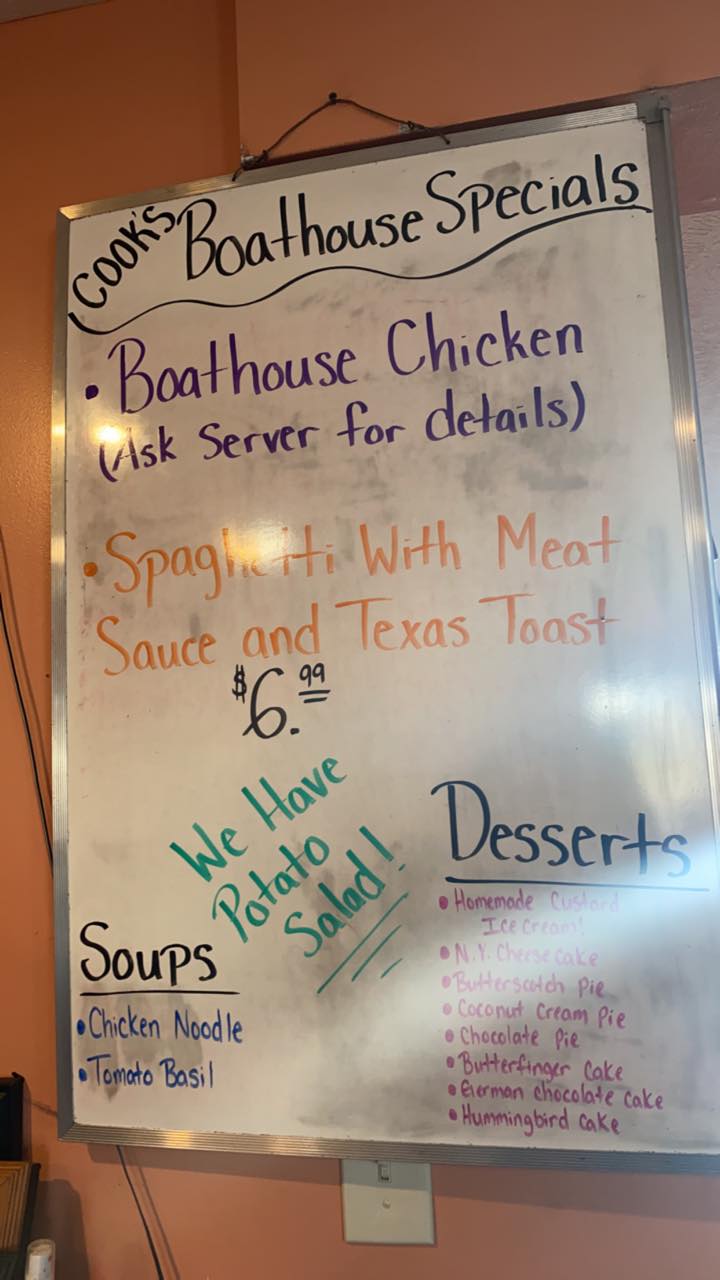 COOK'S Boathouse Specials
• Boathouse Chicken
(Ask Server for details)
• Spaghetti With Meat
Sauce and Texas Toast
$6.99
We Have
Potato
Salad!
Desserts
• Homemade Custard
Ice Cream!
• N.Y. Cheesecake
• Butterscotch Pie
• Coconut Cream Pie
• Chocolate Pie
• Butterfinger Cake
• German chocolate cake
• Hummingbird cake
Soups
• Chicken Noodle
• Tomato Basil